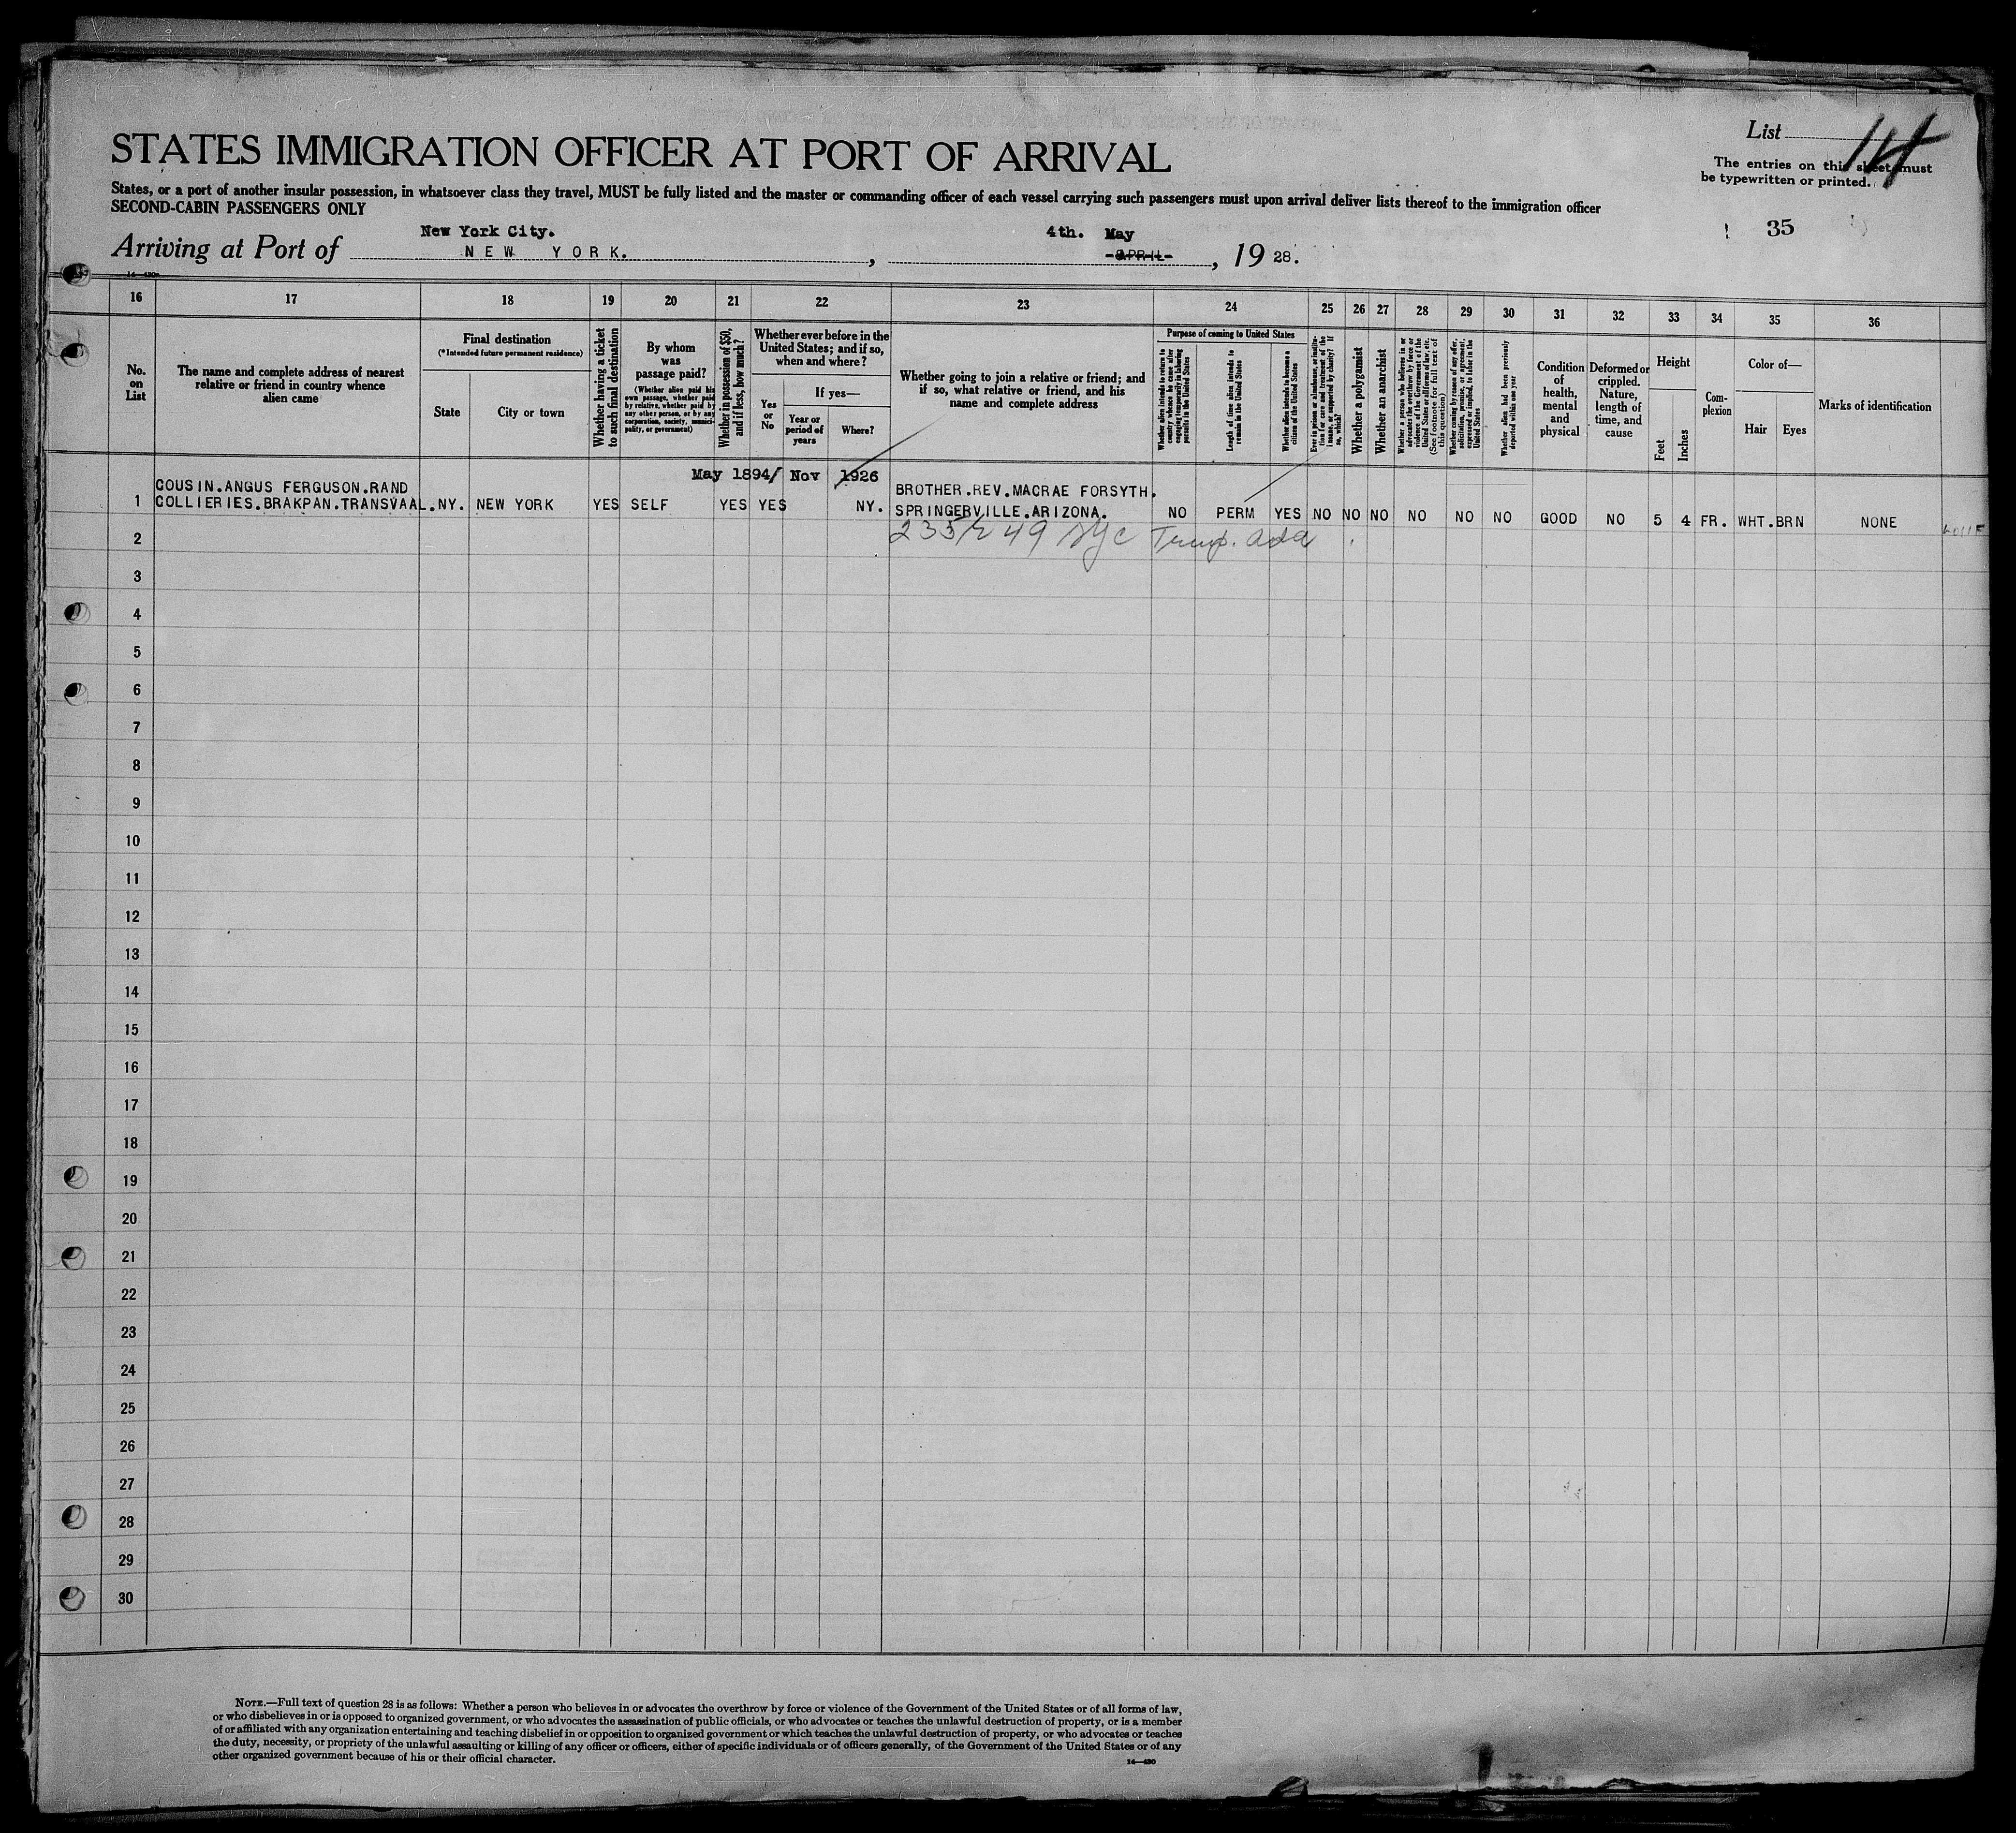 STATES IMMIGRATION OFFICER AT PORT OF ARRIVAL
List 14
The entries on this sheet must
be typewritten or printed.
States, or a port of another insular possession, in whatsoever class they travel, MUST be fully listed and the master or commanding officer of each vessel carrying such passengers must upon arrival deliver lists thereof to the immigration officer
SECOND-CABIN PASSENGERS ONLY
35
New York City. 4th. May
Arriving at Port of NEW YORK. , APRIL , 19 28.
16 17 18 19 20 21 22 23 24 25 26 27 28 29 30 31 32 33 34 35 36
No.
on
List
The name and complete address of nearest
relative or friend in country whence
alien came
Final destination
(*Intended future permanent residence)
State
City or town
Whether having a ticket
to such final destination
By whom
was
passage paid?
(Whether alien paid his
own passage, whether paid
by relative, whether paid by
any other person, or by any
corporation, society, munici-
pality, or government)
Whether in possession of $50,
and if less, how much?
Whether ever before in the
United States; and if so,
when and where?
Yes
or
No
If yes—
Year or
period of
years
Where?
Whether going to join a relative or friend; and
if so, what relative or friend, and his
name and complete address
Purpose of coming to United States
Whether alien intends to return to
country whence he came after
engaging temporarily in laboring
pursuits in the United States
Length of time alien intends to
remain in the United States
Whether alien intends to become a
citizen of the United States
Ever in prison or almshouse, or institu-
tion for care and treatment of the
insane, or supported by charity? If
so, which?
Whether a polygamist
Whether an anarchist
Whether a person who believes in or
advocates the overthrow by force or
violence of the Government of the
United States or all forms of law, etc.
(See footnote for full text of
this question)
Whether coming by reason of any offer,
solicitation, promise, or agreement,
expressed or implied, to labor in the
United States
Whether alien had been previously
deported within one year
Condition
of
health,
mental
and
physical
Deformed or
crippled.
Nature,
length of
time, and
cause
Height
Feet
Inches
Com-
plexion
Color of—
Hair
Eyes
Marks of identification
May 1894/ Nov 1926
COUSIN.ANGUS FERGUSON.RAND BROTHER.REV.MACRAE FORSYTH.
1 COLLIERIES.BRAKPAN.TRANSVAAL. NY. NEW YORK YES SELF YES YES NY. SPRINGERVILLE.ARIZONA. NO PERM YES NO NO NO NO NO NO GOOD NO 5 4 FR. WHT. BRN NONE
2 235 E 49 NYC Temp. Add
3
4
5
6
7
8
9
10
11
12
13
14
15
16
17
18
19
20
21
22
23
24
25
26
27
28
29
30
NOTE.—Full text of question 28 is as follows: Whether a person who believes in or advocates the overthrow by force or violence of the Government of the United States or of all forms of law,
or who disbelieves in or is opposed to organized government, or who advocates the assassination of public officials, or who advocates or teaches the unlawful destruction of property, or is a member
of or affiliated with any organization entertaining and teaching disbelief in or opposition to organized government or which teaches the unlawful destruction of property, or who advocates or teaches
the duty, necessity, or propriety of the unlawful assaulting or killing of any officer or officers, either of specific individuals or of officers generally, of the Government of the United States or of any
other organized government because of his or their official character.
14—430